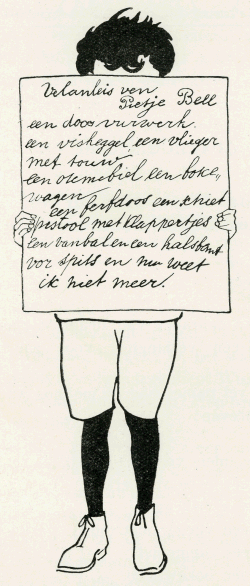 Verlanleis van
Pietje Bell
een doos vurwerk
een visheggel een vlieger
met touw
een otemebiel een boke-
wagen
een ferfdoos een schiet
pistool met klappertjes
een vanbal en een halsbant
vor spits en nu weet
ik niet meer.